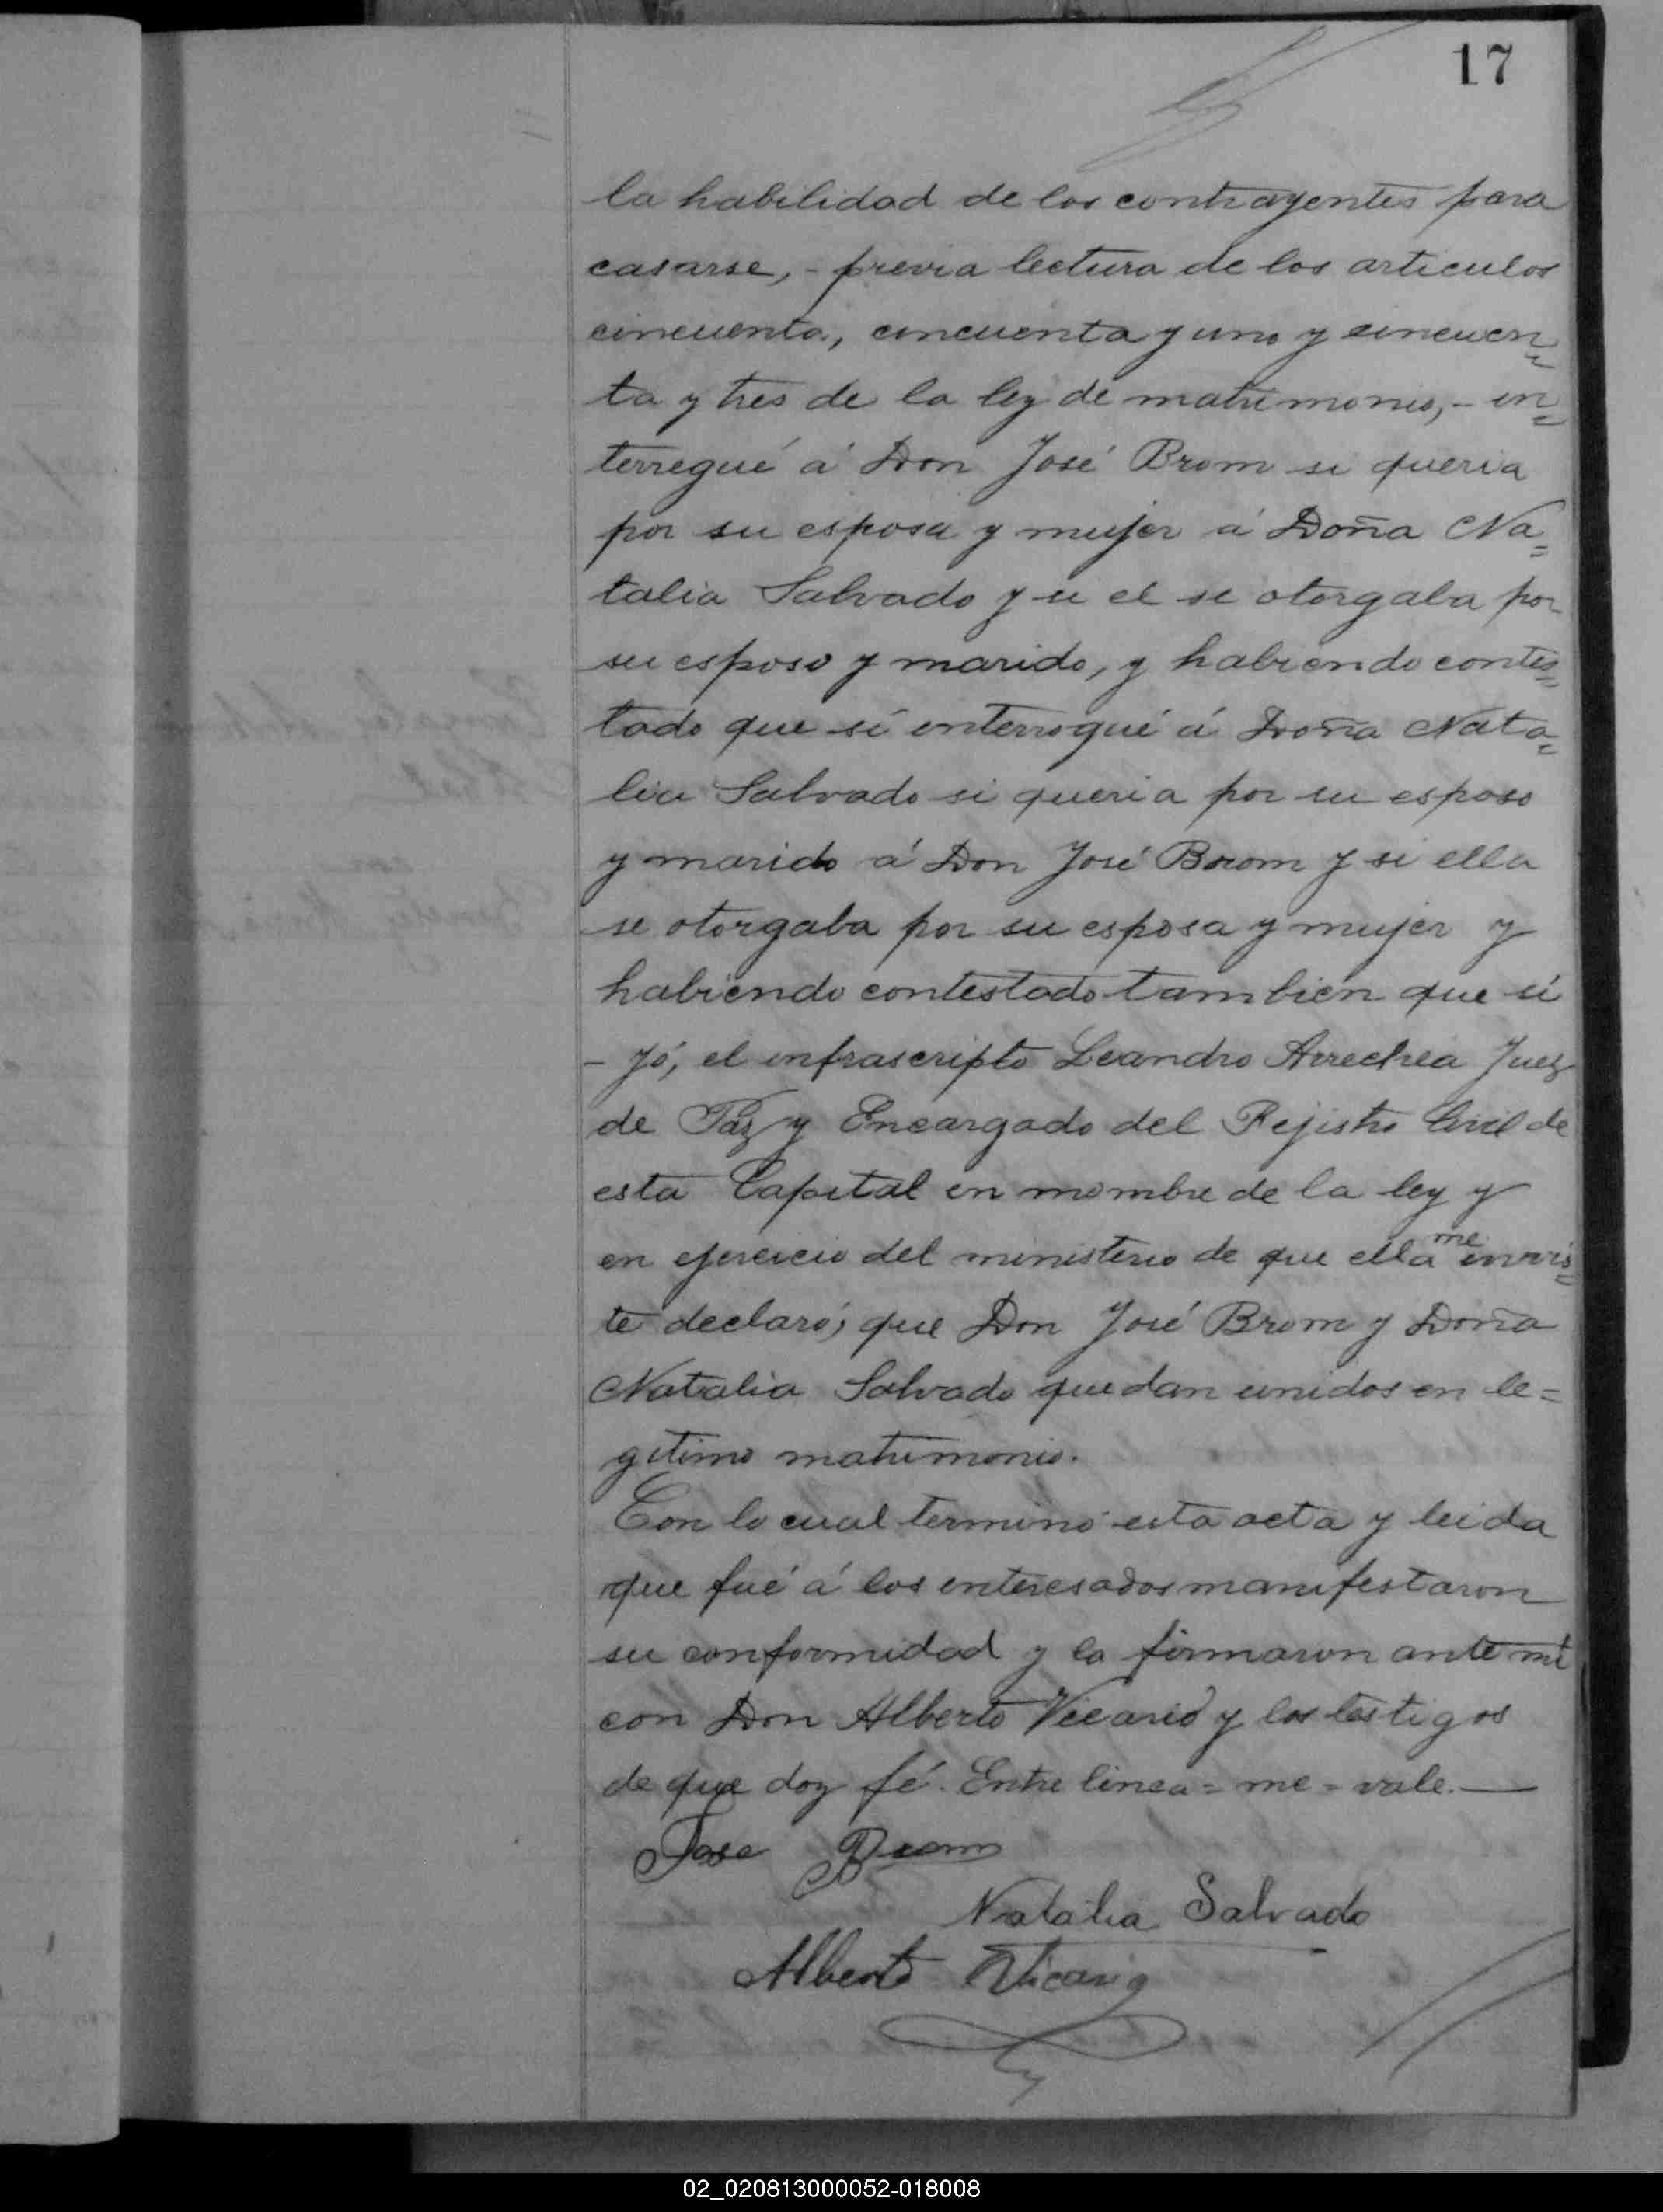 17
la habilidad de los contrayentes para
casarse, - previa lectura de los articulos
cincuenta, cincuenta y uno y cincuen=
ta y tres de la ley de matrimonio, - in=
terregué á Don José Brom si queria
por su esposa y mujer á Doña Na=
talia Salvado y si el se otorgaba por
su esposo y marido, y habiendo contes=
tado que sí interrogué á Doña Nata=
lia Salvado si queria por su esposo
y marido á Don José Brom y si ella
se otorgaba por su esposa y mujer y
habiendo contestado tambien que sí
- Yó, el infrascripto Leandro Arrechea Juez
de Paz y Encargado del Rejistro Civil de
esta Capital en nombre de la ley y
en ejercicio del ministerio de que ella me invis=
te declaró; que Don José Brom y Doña
Natalia Salvado quedan unidos en le=
gitimo matrimonio.
Con lo cual terminó esta acta y leida
que fué á los interesados manifestaron
su conformidad y la firmaron ante mí
con Don Alberto Vicario y los testigos
de que doy fé. Entre linea = me = vale. —
Jose Brom
Natalia Salvado
Alberto Vicario
02_020813000052-018008